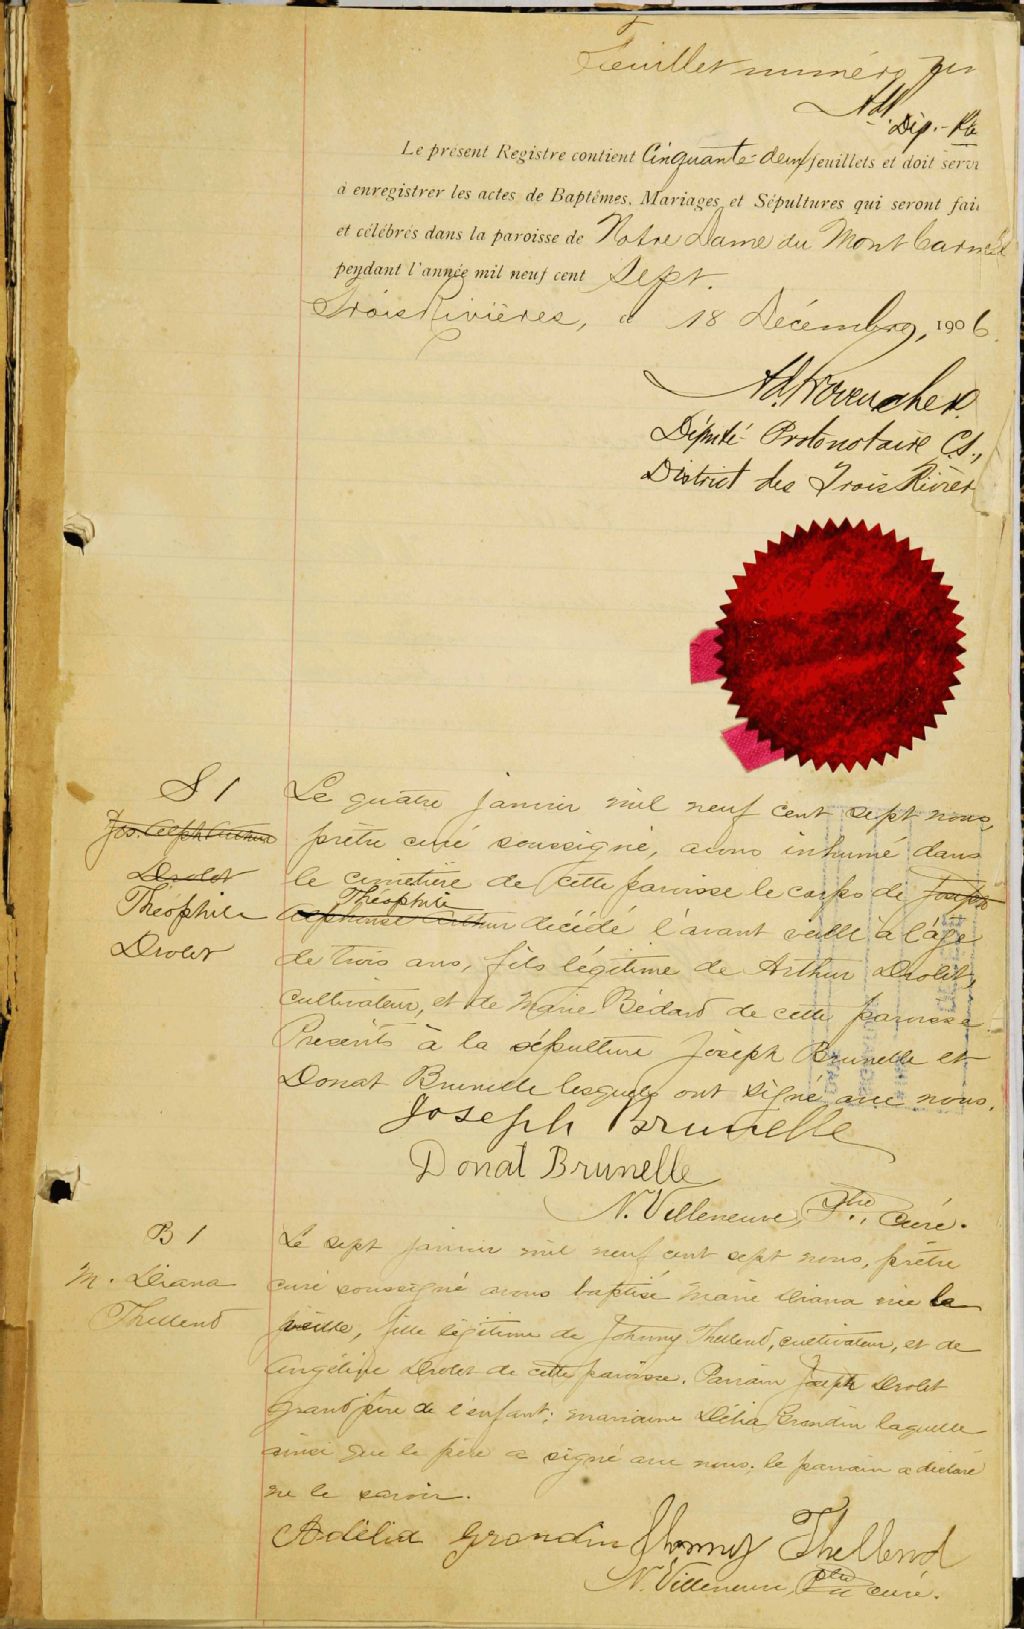 Feuillet numéro
Dép.-
Le présent Registre contient Cinquante-deux feuillets et doit servi
à enregistrer les actes de Baptêmes, Mariages et Sépultures qui seront fai
et célébrés dans la paroisse de Notre Dame du Mont Carmel
pendant l'année mil neuf cent Sept.
Trois Rivières, ce 18 Décembre, 1906.
Ad. Provencher
Député Protonotaire C.S.,
District des Trois Rivièr
S 1
Jos. Alph Arthur
Drolet
Théophile
Drolet
Le quatre janvier mil neuf cent sept nous,
prêtre curé soussigné, avons inhumé dans
le cimetière de cette paroisse le corps de Joseph
Théophile
Alphonse Arthur décédé l'avant veille à l'âge
de trois ans, fils légitime de Arthur Drolet,
cultivateur, et de Marie Bédard de cette paroisse.
Présents à la sépulture Joseph Brunelle et
Donat Brunelle lesquels ont signé avec nous.
Joseph Brunelle
Donat Brunelle
N. Villeneuve, Ptre curé.
B 1
M. Diana
Thellend
Le sept janvier mil neuf cent sept nous, prêtre
curé soussigné avons baptisé Marie Diana née la
veille, fille légitime de Johnny Thellend, cultivateur, et de
Angéline Drolet de cette paroisse. Parrain Joseph Drolet
grand père de l'enfant; marraine Délia Grandin laquelle
ainsi que le père a signé avec nous; le parrain a déclaré
ne le savoir.
Adélia Grandin Jhonny Thellend
N. Villeneuve, Ptre curé.